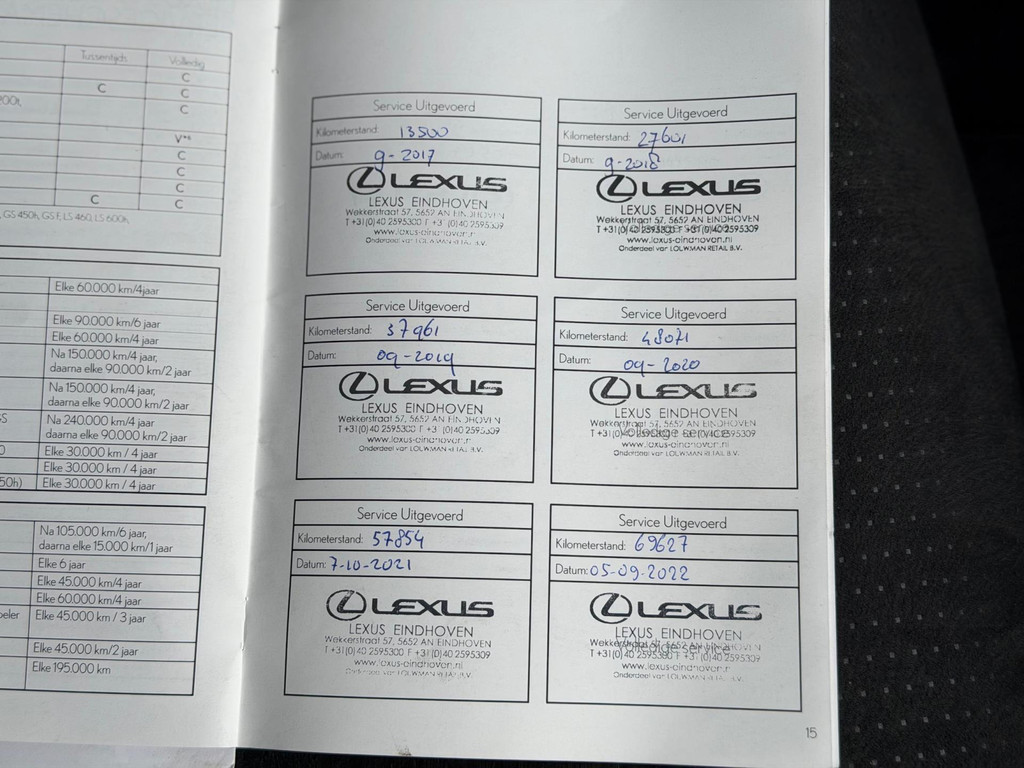 Tussentijds Volledig
C
C C
200t, C
V*⁴
C
C
C
C C
, GS 450h, GS F, LS 460, LS 600h,
Elke 60.000 km/4jaar
Elke 90.000 km/6 jaar
Elke 60.000 km/4 jaar
Na 150.000 km/4 jaar,
daarna elke 90.000 km/2 jaar
Na 150.000 km/4 jaar,
daarna elke 90.000 km/2 jaar
GS Na 240.000 km/4 jaar
daarna elke 90.000 km/2 jaar
Elke 30.000 km / 4 jaar
Elke 30.000 km / 4 jaar
50h) Elke 30.000 km / 4 jaar
Na 105.000 km/6 jaar,
daarna elke 15.000 km/1 jaar
Elke 6 jaar
Elke 45.000 km/4 jaar
Elke 60.000 km/4 jaar
peler Elke 45.000 km / 3 jaar
Elke 45.000 km/2 jaar
Elke 195.000 km
Service Uitgevoerd
Kilometerstand: 13500
Datum: 9-2017
LEXUS
LEXUS EINDHOVEN
Wekkerstraat 57, 5652 AN EINDHOVEN
T +31(0)40 2595300 F +31 (0)40 2595309
www.lexus-eindhoven.nl
Onderdeel van LOUWMAN RETAIL B.V.
Service Uitgevoerd
Kilometerstand: 27601
Datum: 9-2018
LEXUS
LEXUS EINDHOVEN
Wekkerstraat 57, 5652 AN EINDHOVEN
T +31(0)40 2595300 F +31 (0)40 2595309
www.lexus-eindhoven.nl
Onderdeel van LOUWMAN RETAIL B.V.
Service Uitgevoerd
Kilometerstand: 37961
Datum: 09-2019
LEXUS
LEXUS EINDHOVEN
Wekkerstraat 57, 5652 AN EINDHOVEN
T +31(0)40 2595300 F +31 (0)40 2595309
www.lexus-eindhoven.nl
Onderdeel van LOUWMAN RETAIL B.V.
Service Uitgevoerd
Kilometerstand: 48071
Datum: 09-2020
LEXUS
LEXUS EINDHOVEN
Wekkerstraat 57, 5652 AN EINDHOVEN
T +31(0)40 2595300 F +31 (0)40 2595309
Volledige service
www.lexus-eindhoven.nl
Onderdeel van LOUWMAN RETAIL B.V.
Service Uitgevoerd
Kilometerstand: 57854
Datum: 7-10-2021
LEXUS
LEXUS EINDHOVEN
Wekkerstraat 57, 5652 AN EINDHOVEN
T +31(0)40 2595300 F +31 (0)40 2595309
www.lexus-eindhoven.nl
Onderdeel van LOUWMAN RETAIL B.V.
Service Uitgevoerd
Kilometerstand: 69627
Datum: 05-09-2022
LEXUS
LEXUS EINDHOVEN
Wekkerstraat 57, 5652 AN EINDHOVEN
Volledige service
T +31(0)40 2595300 F +31 (0)40 2595309
www.lexus-eindhoven.nl
Onderdeel van LOUWMAN RETAIL B.V.
15